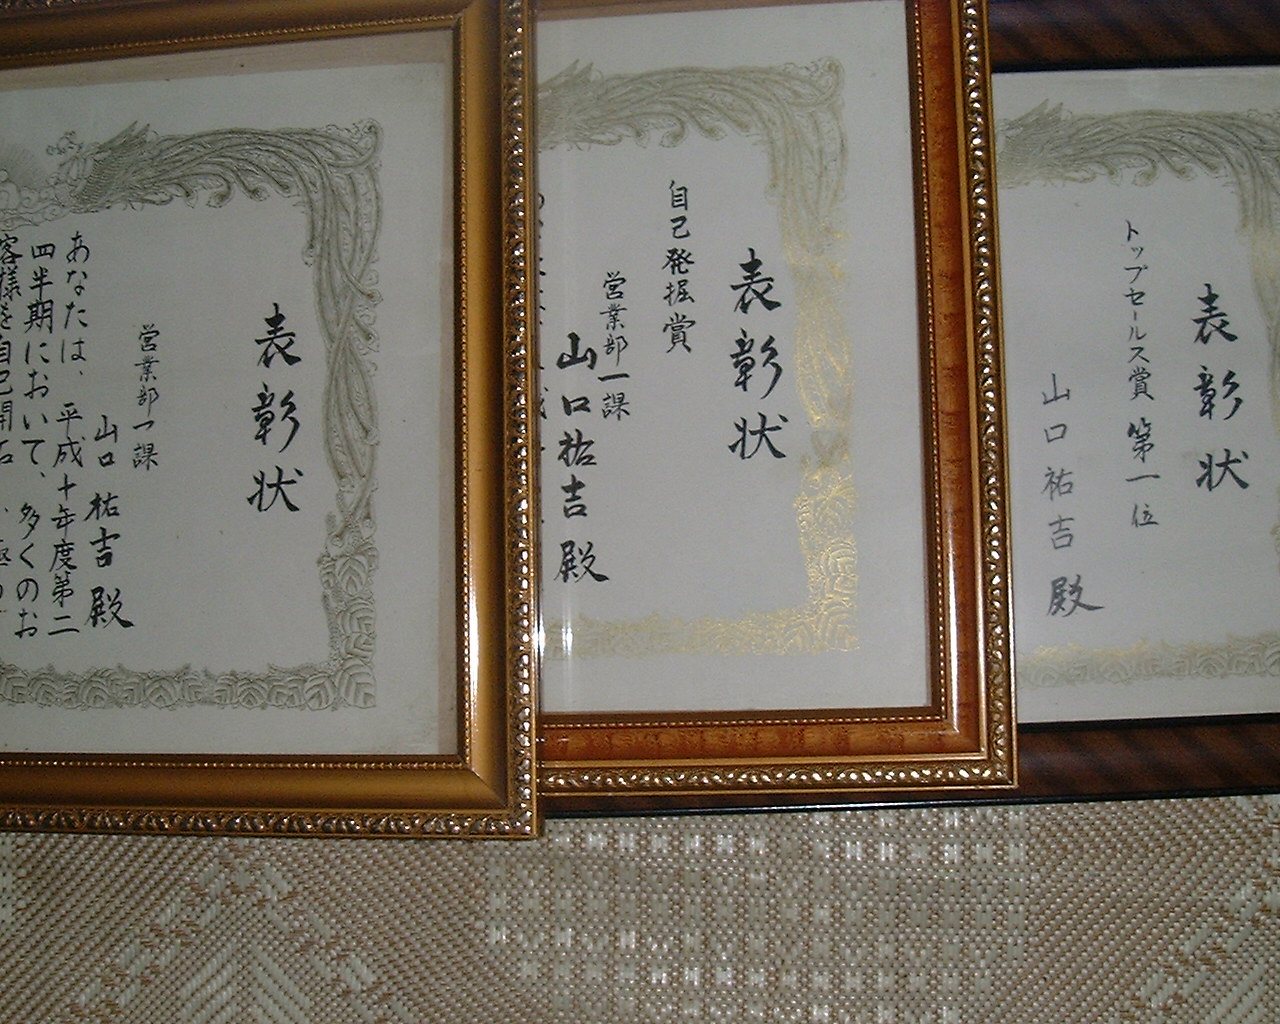 表彰状
トップセールス賞 第一位
山口祐吉 殿
表彰状
自己発掘賞
営業部一課
山口祐吉 殿
表彰状
営業部一課
山口 祐吉 殿
あなたは、平成十年度第二
四半期において、多くのお
客様を自己開